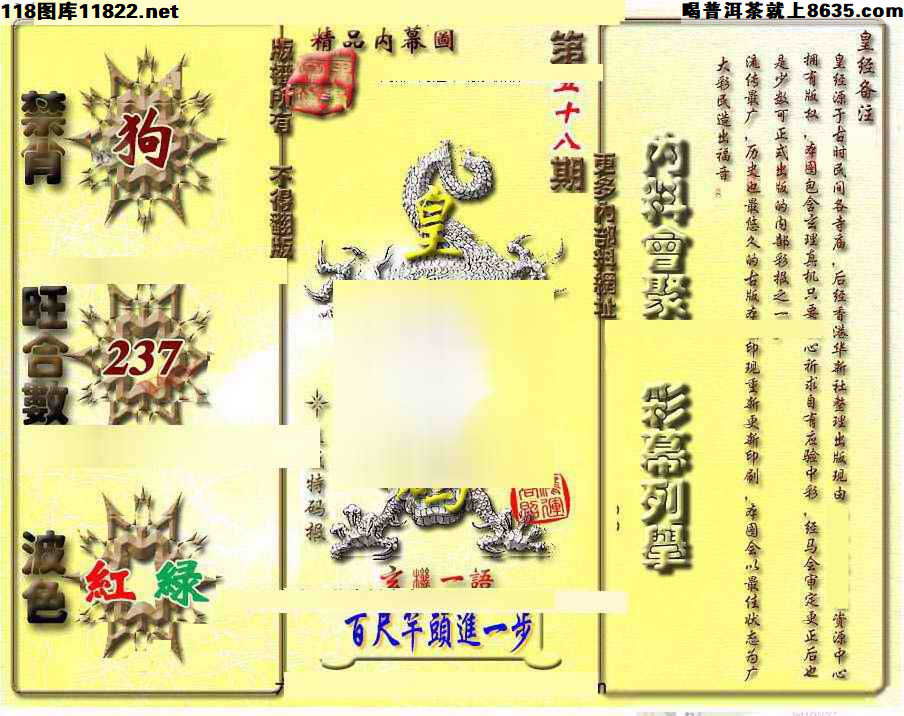 118图库11822.net
喝普洱茶就上8635.com
禁肖
狗
旺合數
237
波色
紅 綠
精品内幕圖
版權所有 不得翻版
第五十八期
更多内部料網址
皇
特码报
玄機一語
百尺竿頭進一步
内料會聚
彩幕列舉
皇经备注
皇经源于古时民间各寺庙，后经香港华新社整理出版现由
资源中心
拥有版权，本图包含玄理真机只要
心祈求自有应验中彩，经马会审定更正后也
是少数可正式出版的内部彩报之一
流传最广，历史也最悠久的古版本
印现重新更新印刷，本图会以最佳状态为广
大彩民造出福音